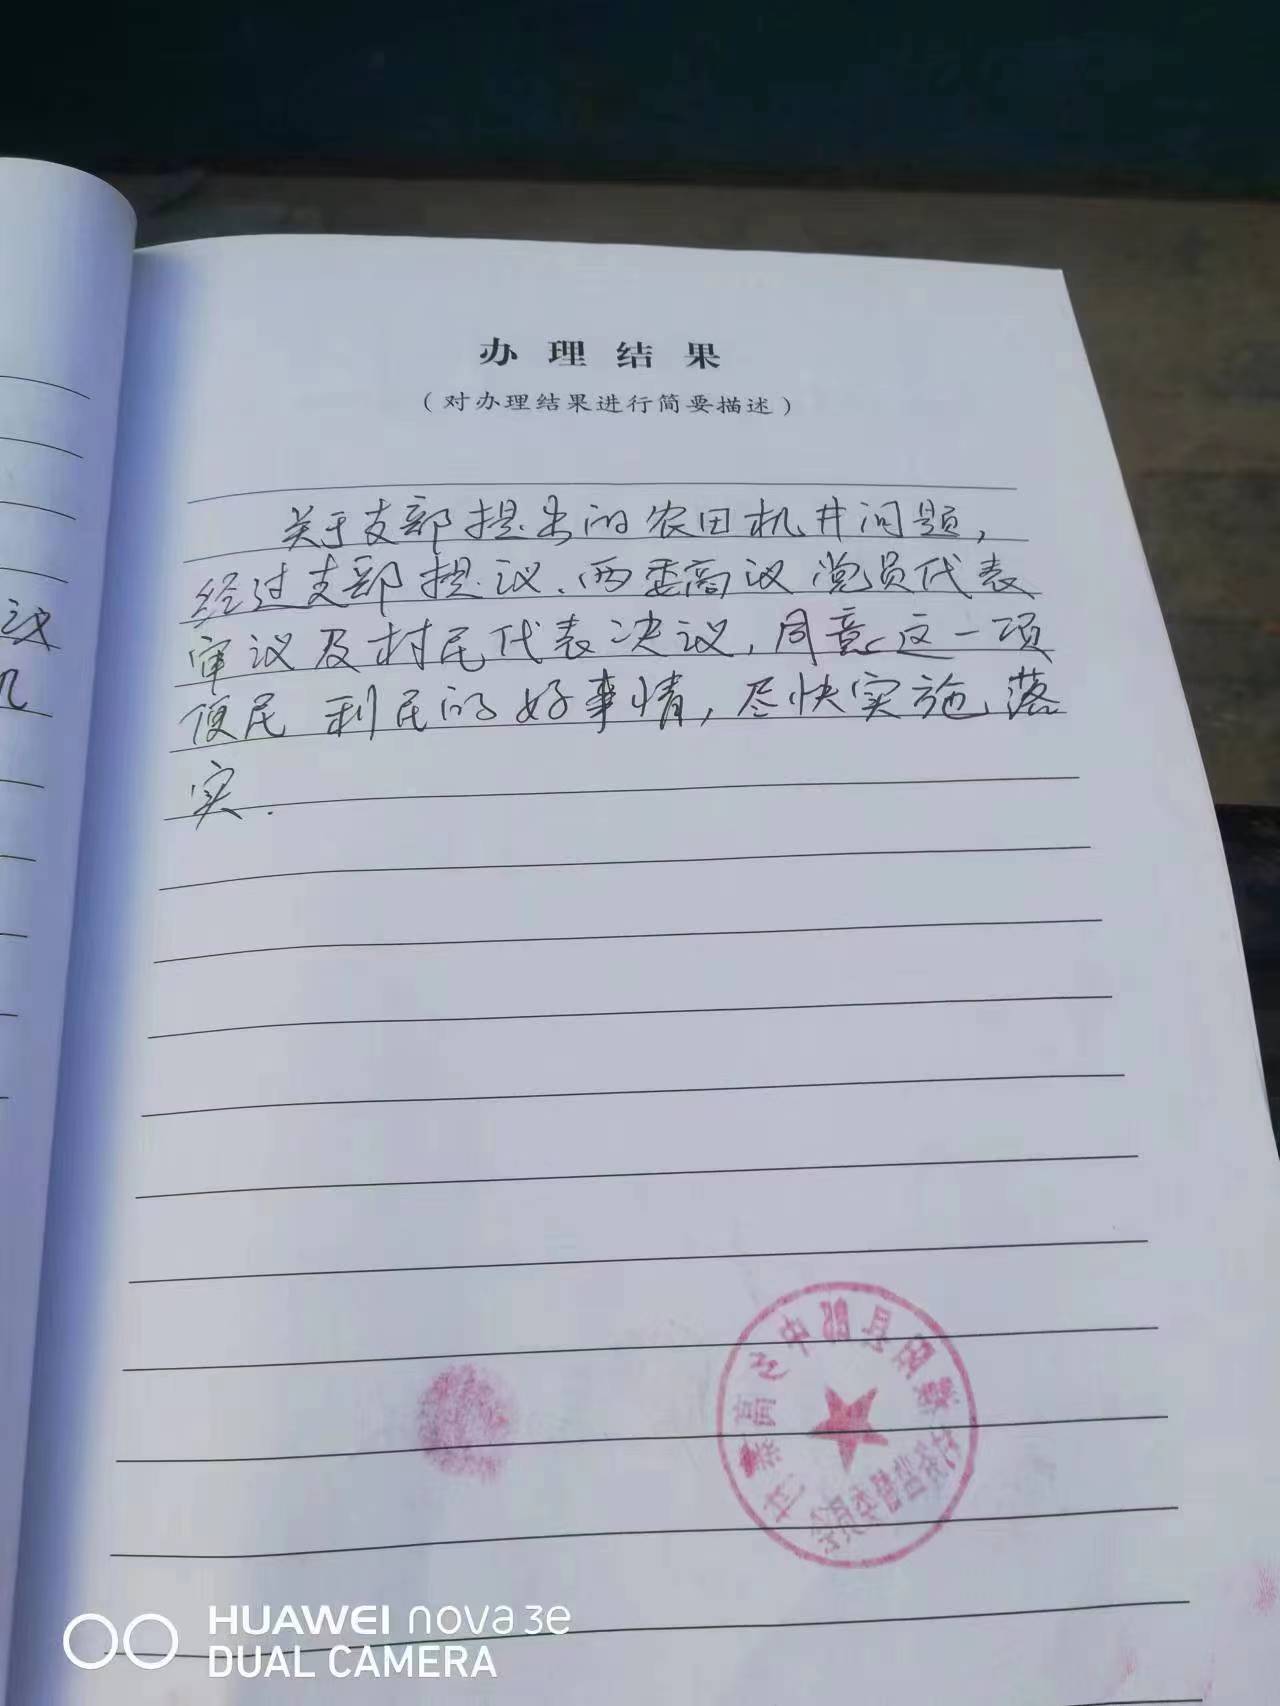 办理结果
（对办理结果进行简要描述）
关于支部提出的农田机井问题，
经过支部提议、两委商议党员代表
审议及村民代表决议，同意这一项
便民利民的好事情，尽快实施落
实.
HUAWEI nova 3e
DUAL CAMERA